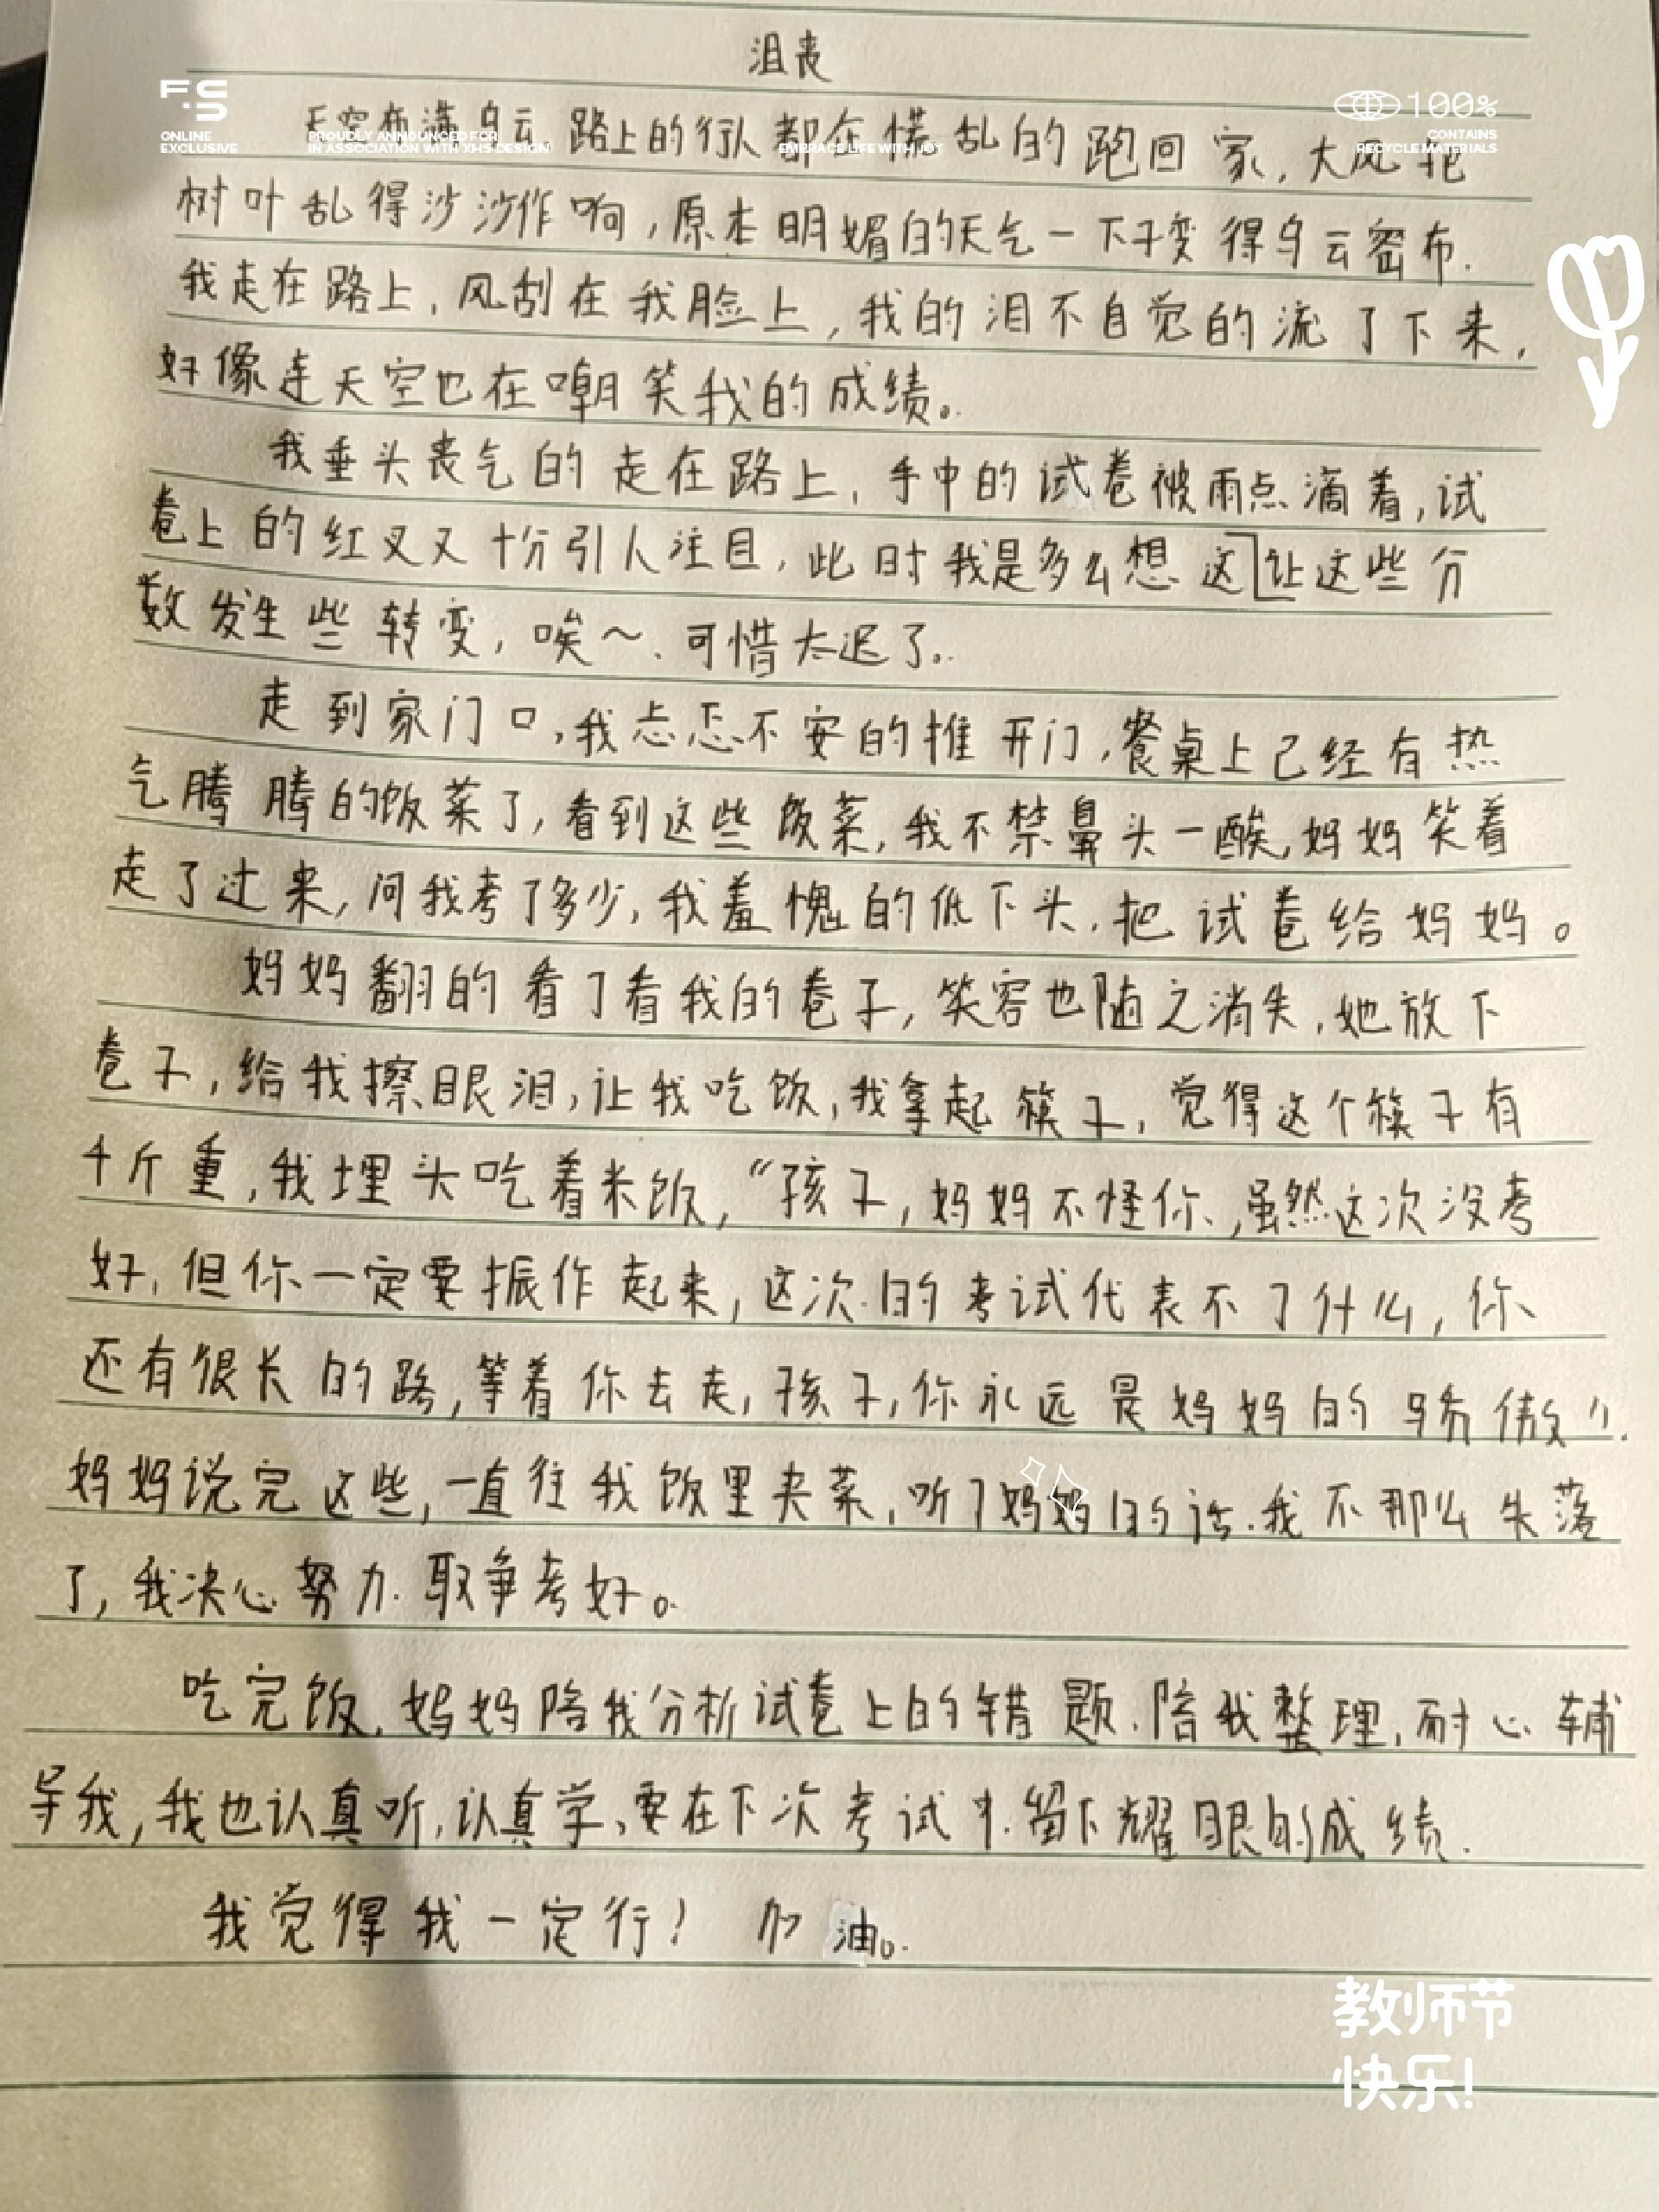 沮丧
F·S
100%
ONLINE
EXCLUSIVE
PROUDLY ANNOUNCED FOR
IN ASSOCIATION WITH XHS DESIGN
EMBRACE LIFE WITH JOY
CONTAINS
RECYCLE MATERIALS
天空布满乌云 路上的行人都在慌乱的跑回家，大风把
树叶乱得沙沙作响，原本明媚的天气一下子变得乌云密布.
我走在路上，风刮在我脸上，我的泪不自觉的流了下来，
好像连天空也在嘲笑我的成绩。
我垂头丧气的走在路上，手中的试卷被雨点滴着，试
卷上的红叉叉十分引人注目，此时我是多么想这让这些分
数发生些转变，唉～、可惜太迟了。
走到家门口，我忐忑不安的推开门，餐桌上已经有热
气腾腾的饭菜了，看到这些饭菜，我不禁鼻头一酸，妈妈笑着
走了过来，问我考了多少，我羞愧的低下头，把试卷给妈妈。
妈妈翻的看了看我的卷子，笑容也随之消失，她放下
卷子，给我擦眼泪，让我吃饭，我拿起筷子，觉得这个筷子有
千斤重，我埋头吃着米饭，“孩子，妈妈不怪你，虽然这次没考
好，但你一定要振作起来，这次的考试代表不了什么，你
还有很长的路，等着你去走，孩子，你永远是妈妈的骄傲”.
妈妈说完这些，一直往我饭里夹菜，听了妈妈的话.我不那么失落
了，我决心努力.取争考好。
吃完饭，妈妈陪我分析试卷上的错题、陪我整理，耐心辅
导我，我也认真听，认真学、要在下次考试中.留下耀眼的成绩.
我觉得我一定行！ 加油。
教师节
快乐!